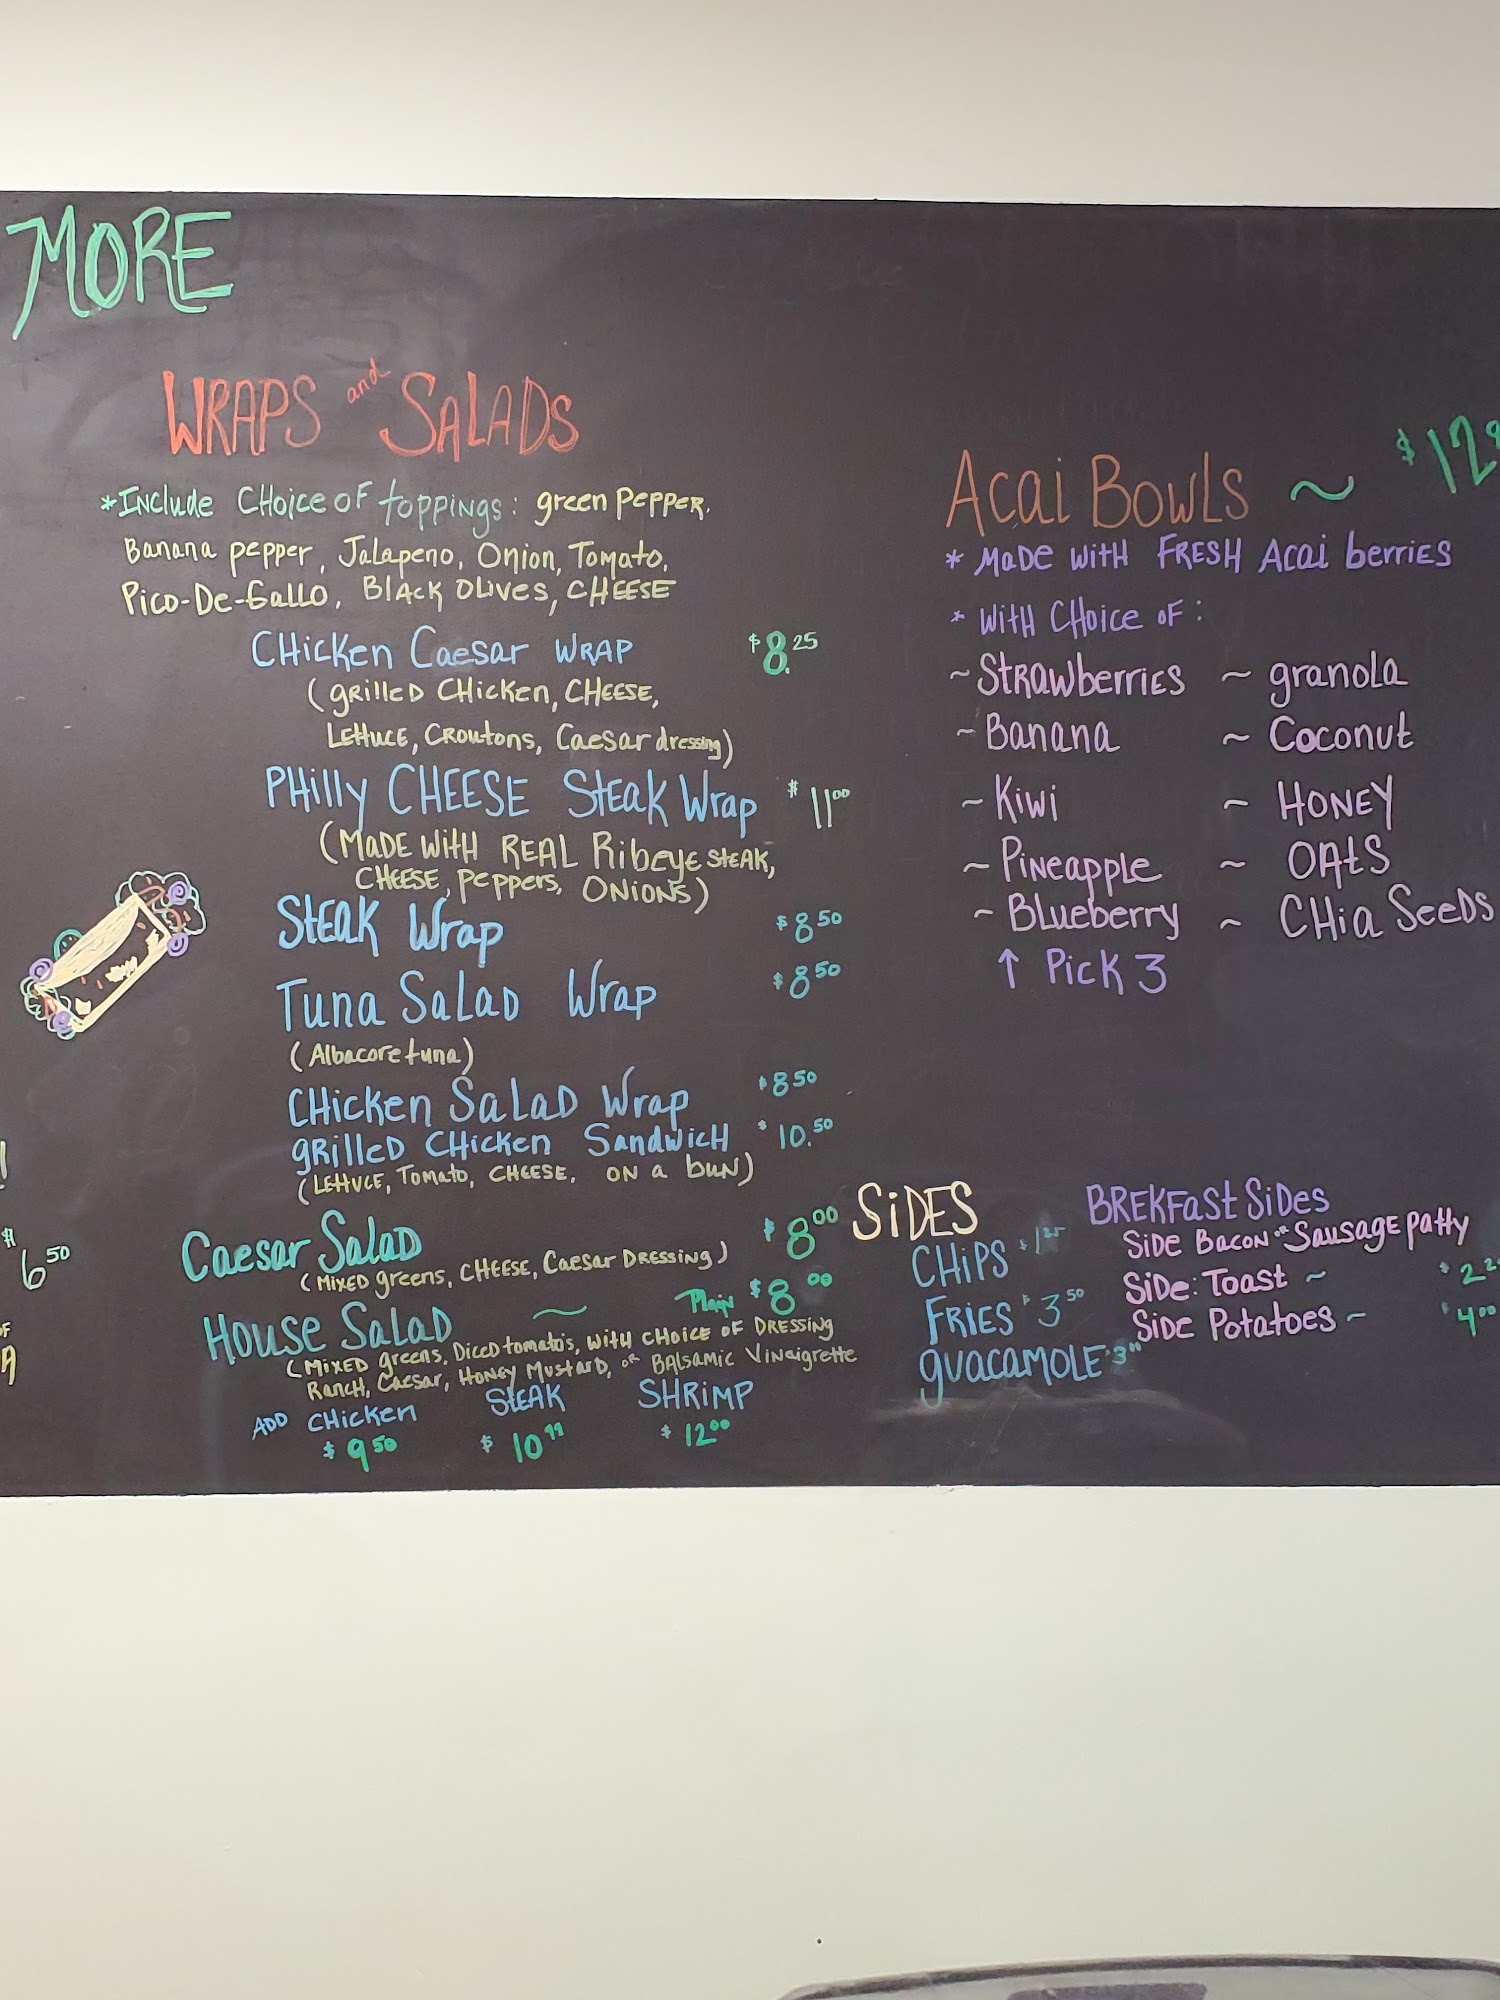 MORE
WRAPS and SALADS
*Include CHoice OF toppings: green pepper,
Banana pepper, Jalapeno, Onion, Tomato,
Pico-De-Gallo, Black OLives, CHEESE
CHicken Caesar WRAP $8.25
(grilled CHicken, CHEESE,
Lettuce, Croutons, Caesar dressing)
PHilly CHEESE Steak Wrap $11.00
(Made With REAL Ribeye STEAK,
CHEESE, peppers, ONIONS)
Steak Wrap $8.50
Tuna Salad Wrap $8.50
(Albacore tuna)
CHicken Salad Wrap $8.50
grilled CHicken Sandwich $10.50
(Lettuce, Tomato, CHEESE, ON a bun)
Caesar Salad $8.00
(Mixed greens, CHEESE, Caesar DRESSING)
House Salad ~ Plain $8.00
(Mixed greens, Diced tomato's, WITH CHOICE OF DRESSING
Ranch, Caesar, Honey Mustard, or Balsamic Vinaigrette
ADD CHicken STEAK SHRIMP
$9.50 $10.99 $12.00
$6.50
OF
Acai Bowls ~ $12
* Made With FRESH Acai berries
* With CHoice OF:
~ Strawberries ~ granola
~ Banana ~ Coconut
~ Kiwi ~ HONEY
~ Pineapple ~ OATS
~ Blueberry ~ CHia Seeds
↑ Pick 3
SiDES
CHiPS $1.25
FRIES $3.50
guacamole
BREKFast SiDes
Side Bacon or Sausage patty
Side: Toast ~ $2
Side Potatoes ~ $4.00